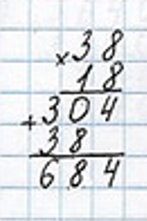 ×38
18
+304
38
684